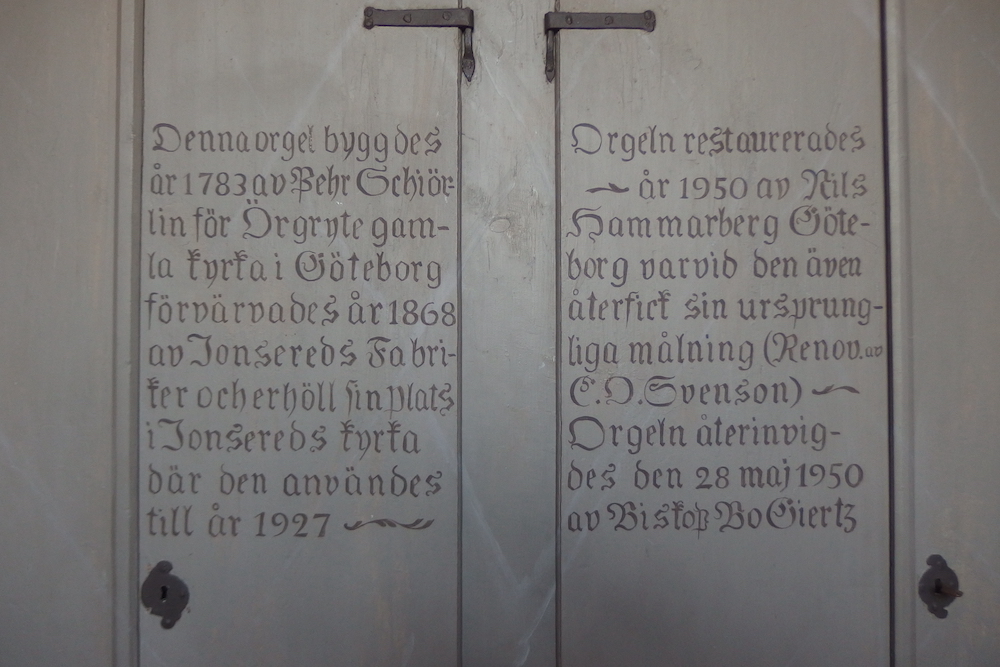 Denna orgel byggdes
år 1783 av Pehr Schiör-
lin för Örgryte gam-
la kyrka i Göteborg
förvärvades år 1868
av Jonsereds Fabri-
ker och erhöll sin plats
i Jonsereds kyrka
där den användes
till år 1927
Orgeln restaurerades
år 1950 av Nils
Hammarberg Göte-
borg varvid den även
återfick sin ursprung-
liga målning (Renov. av
C.O. Svenson)
Orgeln återinvig-
des den 28 maj 1950
av Biskop Bo Giertz